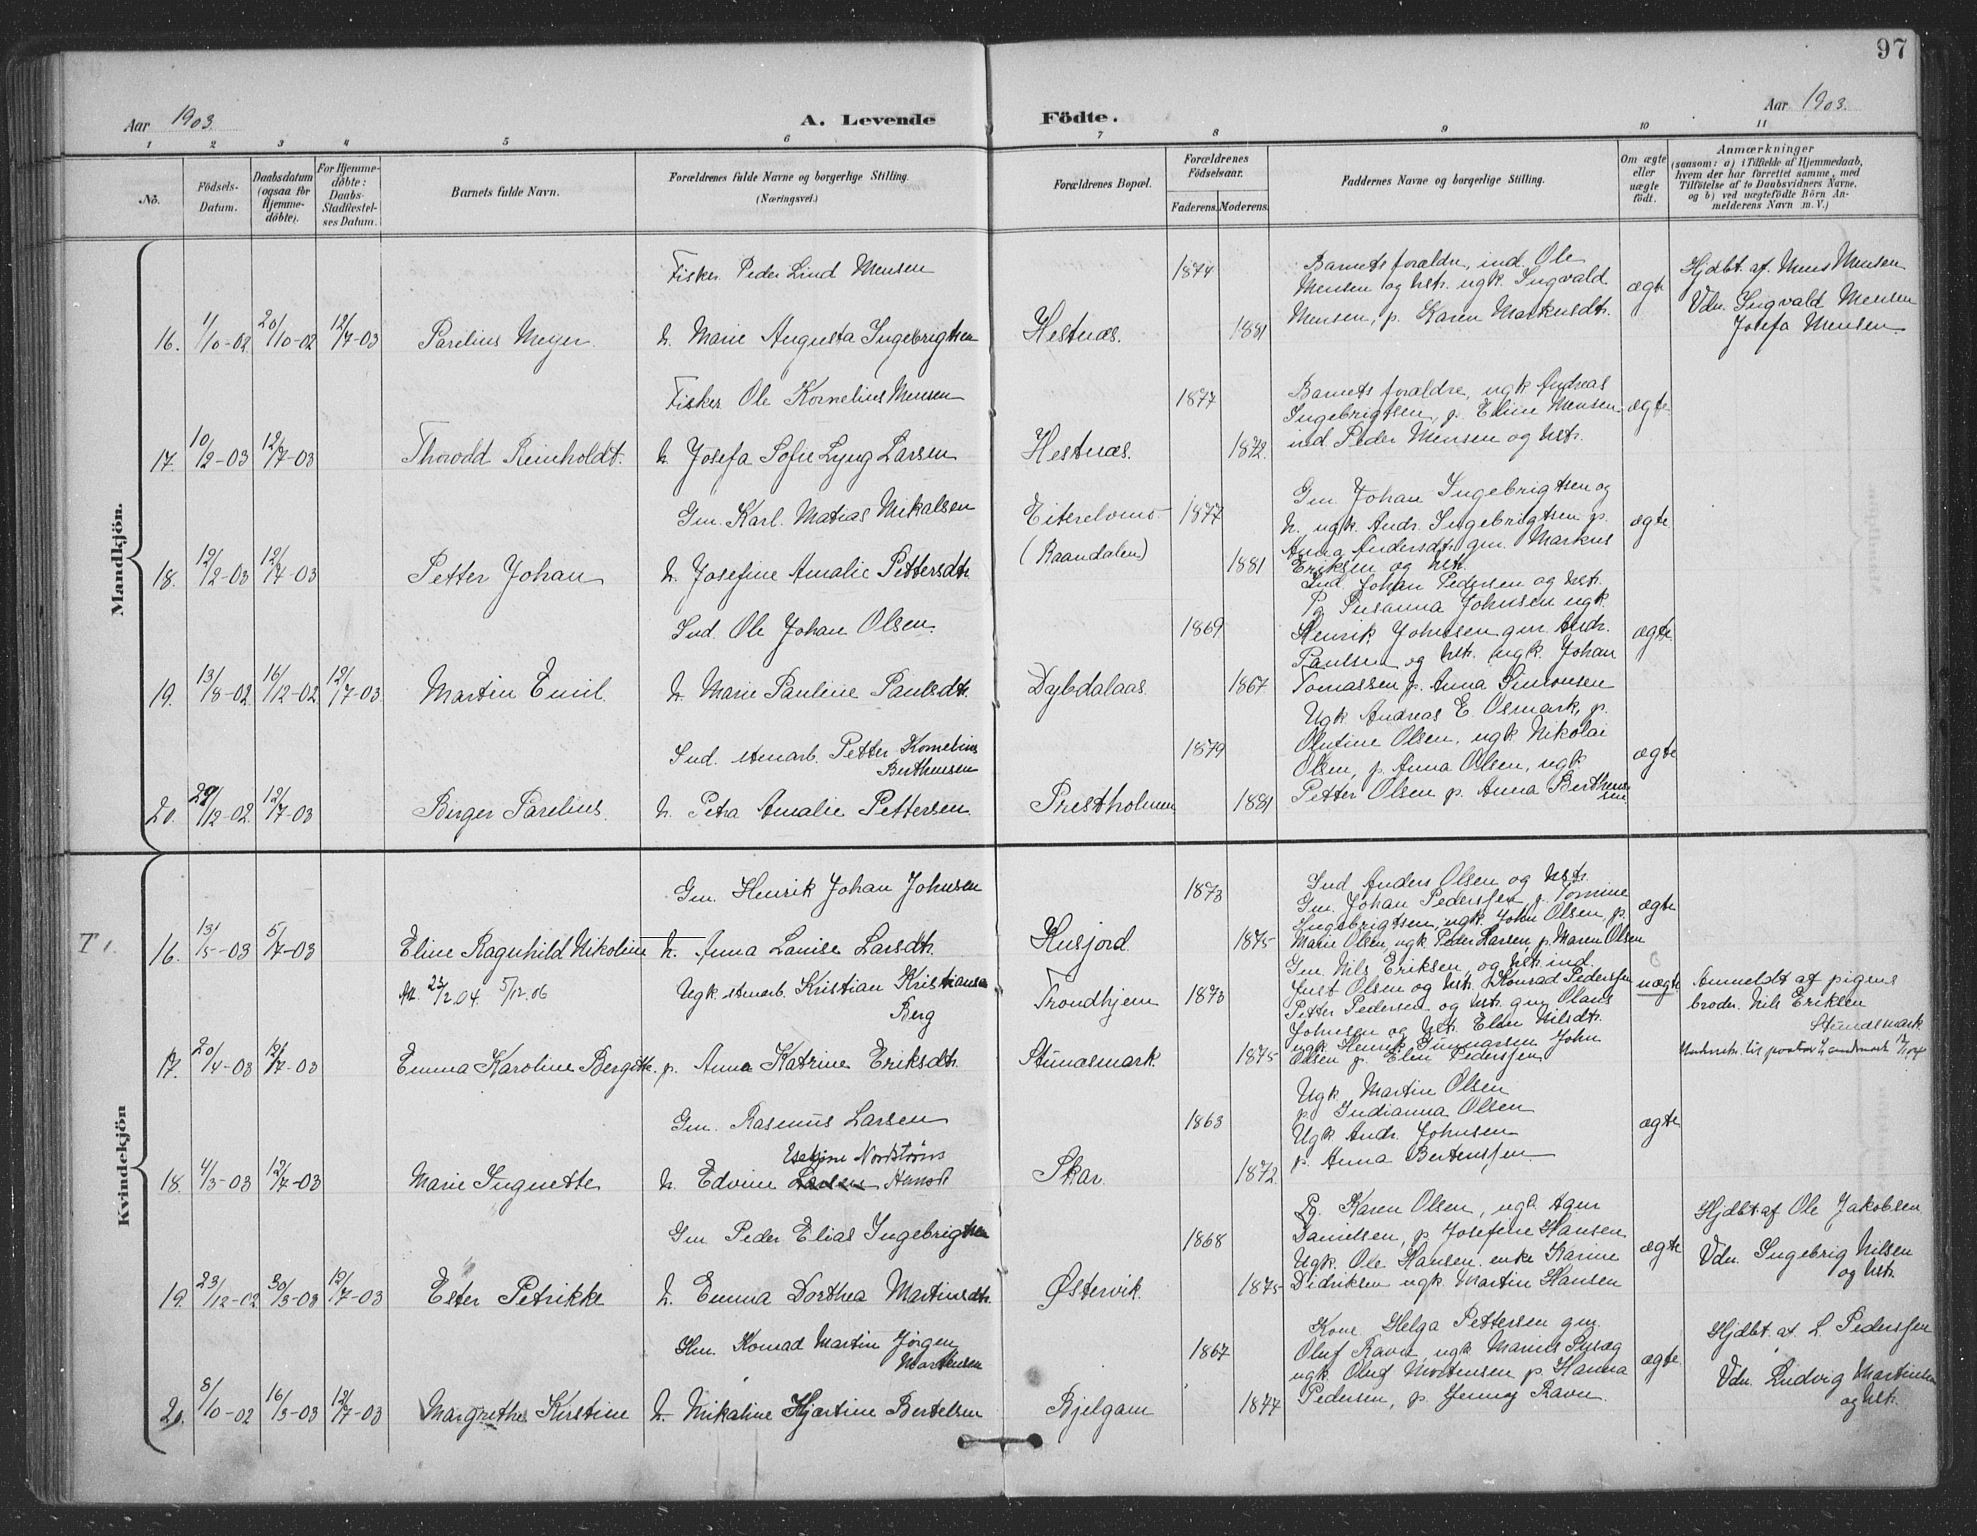 97
Aar 1903.
A. Levende
Födte.
Aar 1903.
1 2 3 4 5 6 7 8 9 10 11
No.
Födsels-Datum.
Daabsdatum (ogsaa för Hjemme-döbte).
For Hjemme-döbte: Daabs-Stadfæstel-ses Datum.
Barnets fulde Navn.
Forældrenes fulde Navne og borgerlige Stilling. (Næringsvei.)
Forældrenes Bopæl.
Forældrenes Födselsaar.
Faderens. Moderens.
Faddernes Navne og borgerlige Stilling.
Om ægte eller uægte födt.
Anmærkninger
(saasom: a) i Tilfælde af Hjemmedaab,
hvem der har forrettet samme, med
Tilföielse af to Daabsvidners Navne,
og b) ved uægtefödte Börn An-
melderens Navn m. V.)
Mandkjön.
Fisker Peder Lind Mensen
1874
16. 1/10-02 20/10-02 12/7-03 Parelius Meyer. h. Marie Augusta Ingebrigtsen Hestnæs. 1881
Barnets forældre, ind. Ole
Mensen og hstr. ugk. Ingvald
Mensen, p. Karen Markusdtr.
ægte
Hjdbt. af Mens Mensen
Vdn. Ingvald Mensen
Josefa Mensen
Fisker Ole Kornelius Mensen
1877
17. 10/2-03 12/7-03 Thorodd Reinholdt. h. Josefa Sofie Lyng Larsen Hestnæs. 1872.
Barnets forældre, ugk. Andreas
Ingebrigtsen, p. Edine Mensen
ind Peder Mensen og hstr.
ægte
Gm. Karl Matias Mikalsen
Eiterelvmo
(Raandalen)
1877
18. 12/2-03 12/7-03 Petter Johan h. Josefine Amalie Pettersdtr. 1881
Gm Johan Ingebrigtsen og
h. ugk. Andr. Ingebrigtsen p.
Anna Andersdtr. gm. Markus
Eriksen og hstr.
ægte
Ind. Ole Johan Olsen.
1869
19. 13/8-02 16/12-02 12/7-03 Martin Emil. h. Marie Pauline Paulsdtr. Dybdalaas. 1867
Ind. Johan Pedersen og hstr.
Pg Susanna Johnsen ugk.
Henrik Johnsen gm. Andr.
Paulsen og hstr. ugk. Johan
Tomassen p. Anna Simonsen
ægte
Ind. stenarb. Petter Kornelius
Berthensen
1879
20. 29/12-02 12/7-03 Birger Parelius. h. Petra Amalie Pettersen. Prestholmen 1881
Ugk. Andreas E. Osmark, p.
Olufine Olsen, ugk. Nikolai
Olsen, p. Anna Olsen, ugk.
Petter Olsen p. Anna Berthensen
ægte
Kvindekjön
Gm. Henrik Johan Johnsen
1873
16. 13/5-03 5/7-03 Eline Ragnhild Nikoline h. Anna Louise Larsdtr. Husjord. 1875
Ind Anders Olsen og hstr.
Gm. Johan Pederssen p. Tomine
Ingebrigtsen, ugk. John Olsen, p.
Marie Olsen, ugk. Peder Larsen, p. Maren Olsen
ægte
At. 23/2.04. 5/12.06
Ugk. stenarb. Kristian Kristiansen
Berg
Trondhjem 1873
17. 20/4-03 12/7-03 Emma Karoline Bergitte p. Anna Katrine Eriksdtr. Stunæsmark. 1875
Gm. Nils Eriksen og hstr. ind.
Just Olsen og hstr. Konrad Pederssen
Petter Pedersen og hstr. gm. Olaus
Johnsen og hstr. Elen Nilsdtr.
ugk. Henrik Gunnarsen John
Olsen p. Elin Pederssen
uægte
Anmeldt af pigens
broder. Nils Eriksen
Stunæsmark
Gm. Rasmus Larsen
1863
Esekine Nordstrøm
18. 4/3-03 12/7-03 Marie Ingnette h. Edvine Skar 1872.
Ugk Martin Olsen
p. Indianna Olsen
Ugk Andr. Johnsen
p. Anna Bertenssen
ægte
Gm Peder Elias Ingebrigtsen
1868
19. 23/12-02 30/3-03 12/7-03 Ester Petrikke h. Emma Dorthea Martinsdtr. Østervik. 1875
Pg. Karen Olsen, ugk. Hgm
Danielsen, p. Josefine Hansen
Ugk. Ole Hansen. enke Karine
Didriksen ugk. Martin Hansen
ægte
Hjdbt. af Ole Jakobsen
Vdn. Ingebrig Nilsen
og hstr.
Hm. Konrad Martin Jørgen
Mortensen
1867
20. 8/10-02 16/3-03 12/7-03 Margrethe Kirstine h. Mikaline Hjartine Bertelsen Bjelgam 1877
Kone Helga Pettersen gm.
Oluf Ravn ugk Marius
ugk. Oluf Mortensen p. Hanna
Pedersen, p. Jenny Ravn.
ægte.
Hjdbt. af L. Pederssen
Vdn. Ludvig Martinsen
og hstr.